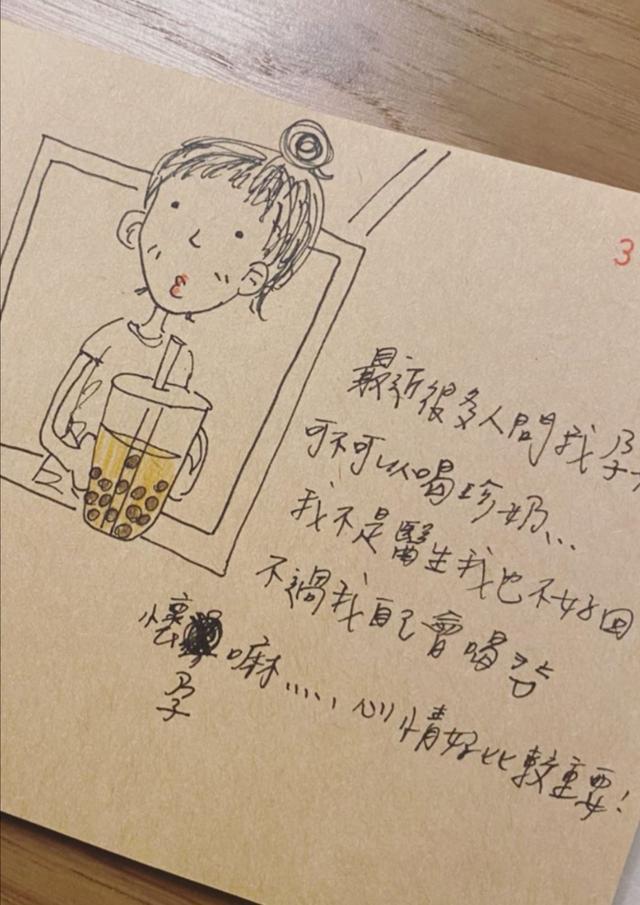 3
最近很多人問我孕
可不可以喝珍奶...
我不是醫生我也不好回
不過我自己會喝
懷孕嘛.....心情好比較重要!